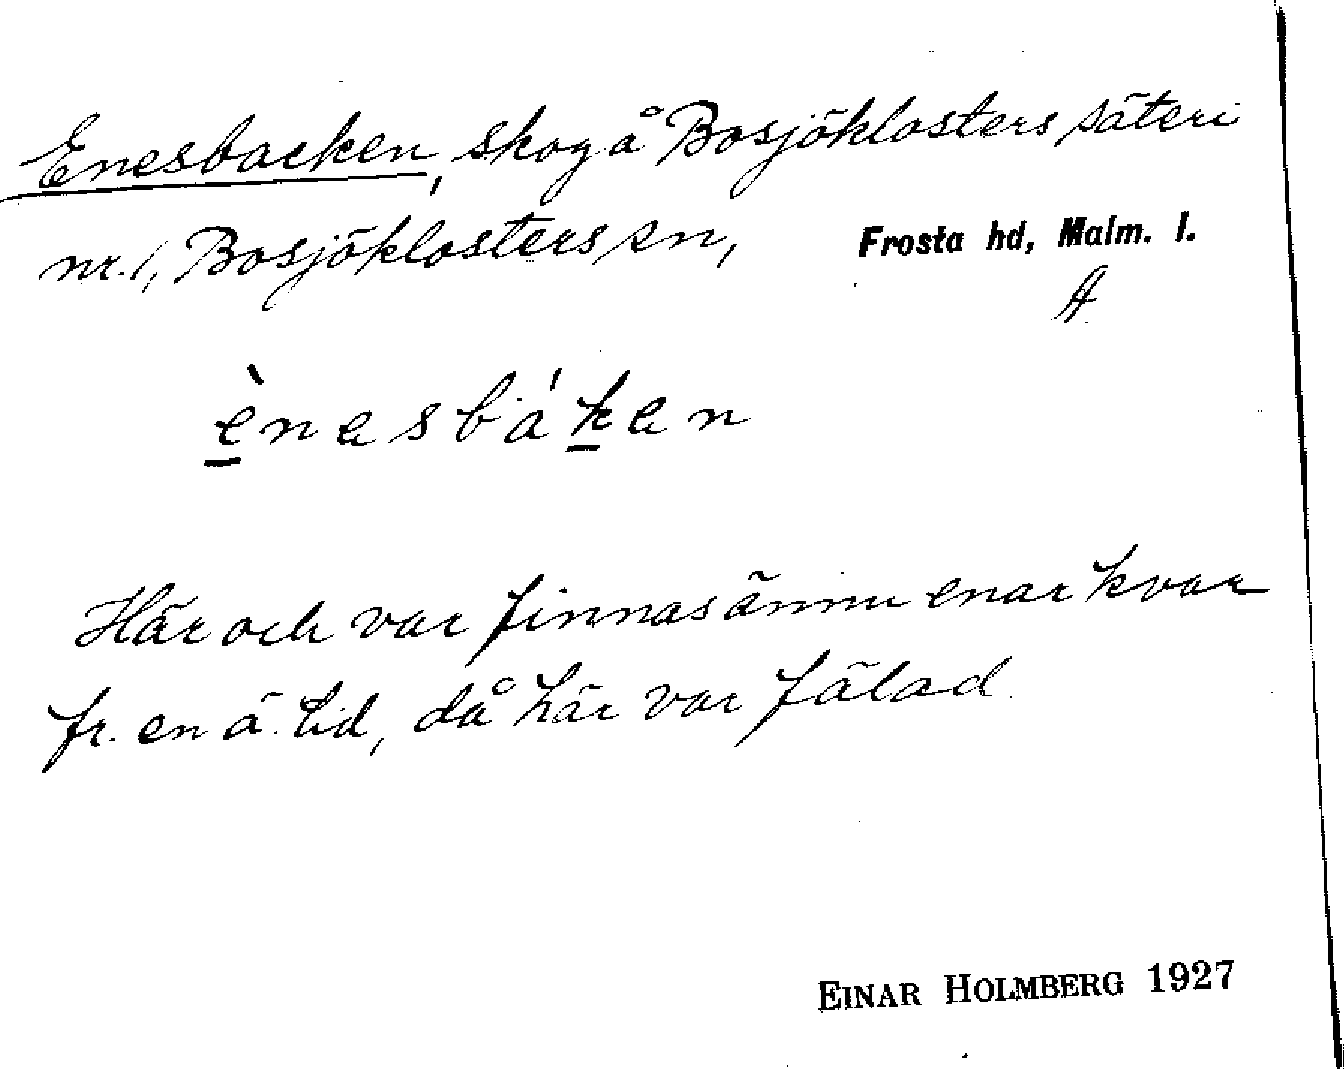 Enesbacken, skog å Bosjöklosters säteri
nr. 1, Bosjöklosters sn, Frosta hd, Malm. l.
A
ènesbáken
Här och var finnas ännu enar kvar
fr. en ä. tid, då här var fälad.
EINAR HOLMBERG 1927